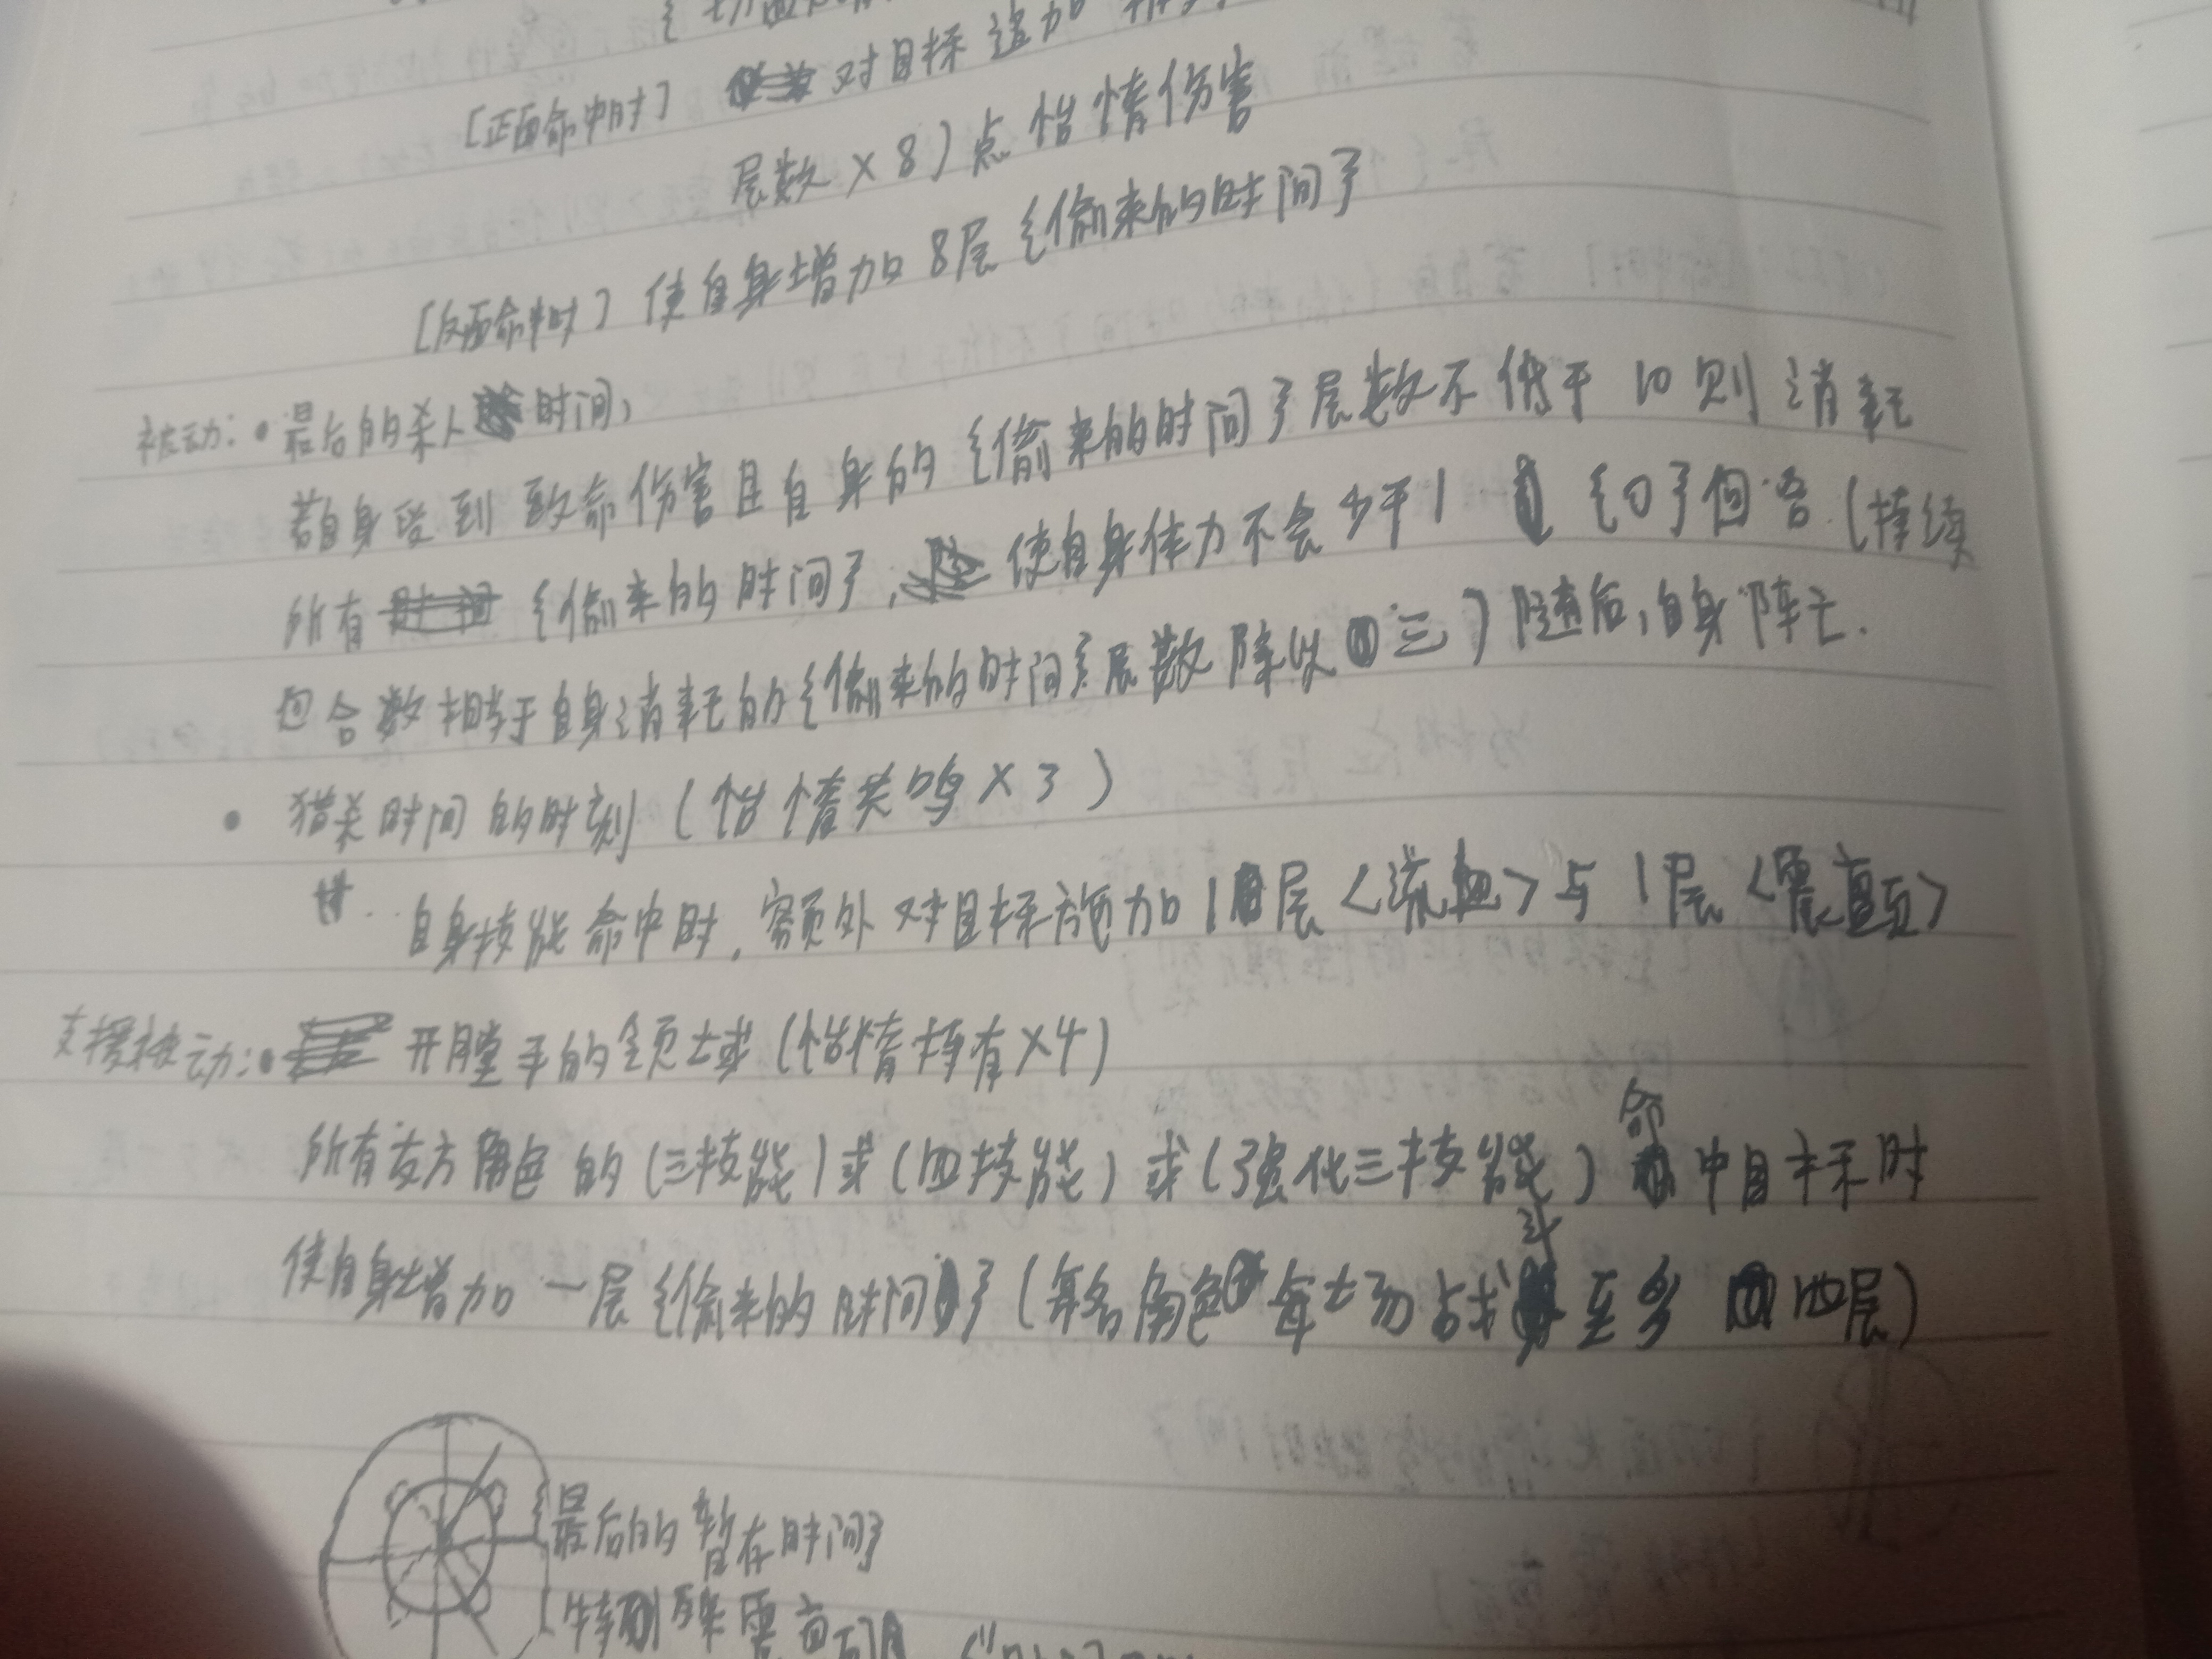 [正面命中时] 对目标追加
层数×8)点怠惰伤害
[反面命中时] 使自身增加8层{偷来的时间}
被动:·最后的杀人时间,
若自身受到致命伤害且自身的{偷来的时间}层数不低于10则消耗
所有{偷来的时间},使自身体力不会少于1{0}回合(持续
回合数相当于自身消耗的{偷来的时间}层数除以三)随后,自身阵亡.
·猎杀时间的时刻(怠惰共鸣×3)
自身技能命中时,额外对目标施加1层<流血>与1层<震颤>
支援被动:·开膛手的领域(怠惰持有×4)
所有友方角色的(三技能)或(四技能)或(强化三技能)命中目标时
使自身增加一层{偷来的时间}(每名角色每场战斗至多四层)
{最后的暂存时间}
[特别 震颤]